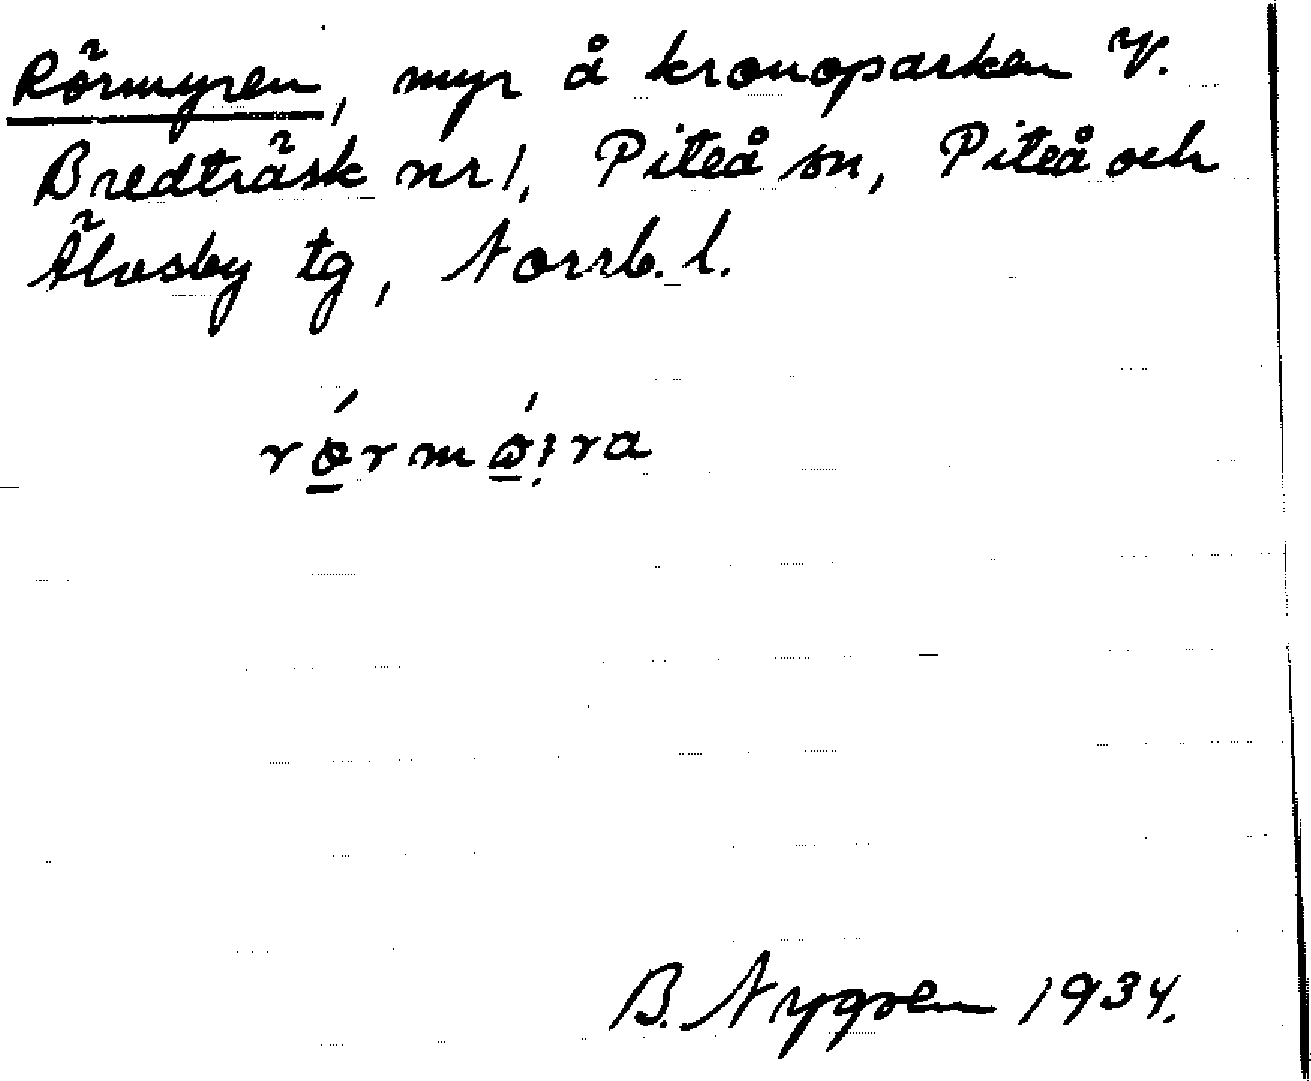 Rörmyren, myr å kronoparken V.
Bredträsk nr 1, Piteå sn, Piteå och
Älvsby tg, Norrb. l.
B. Nygren 1934.